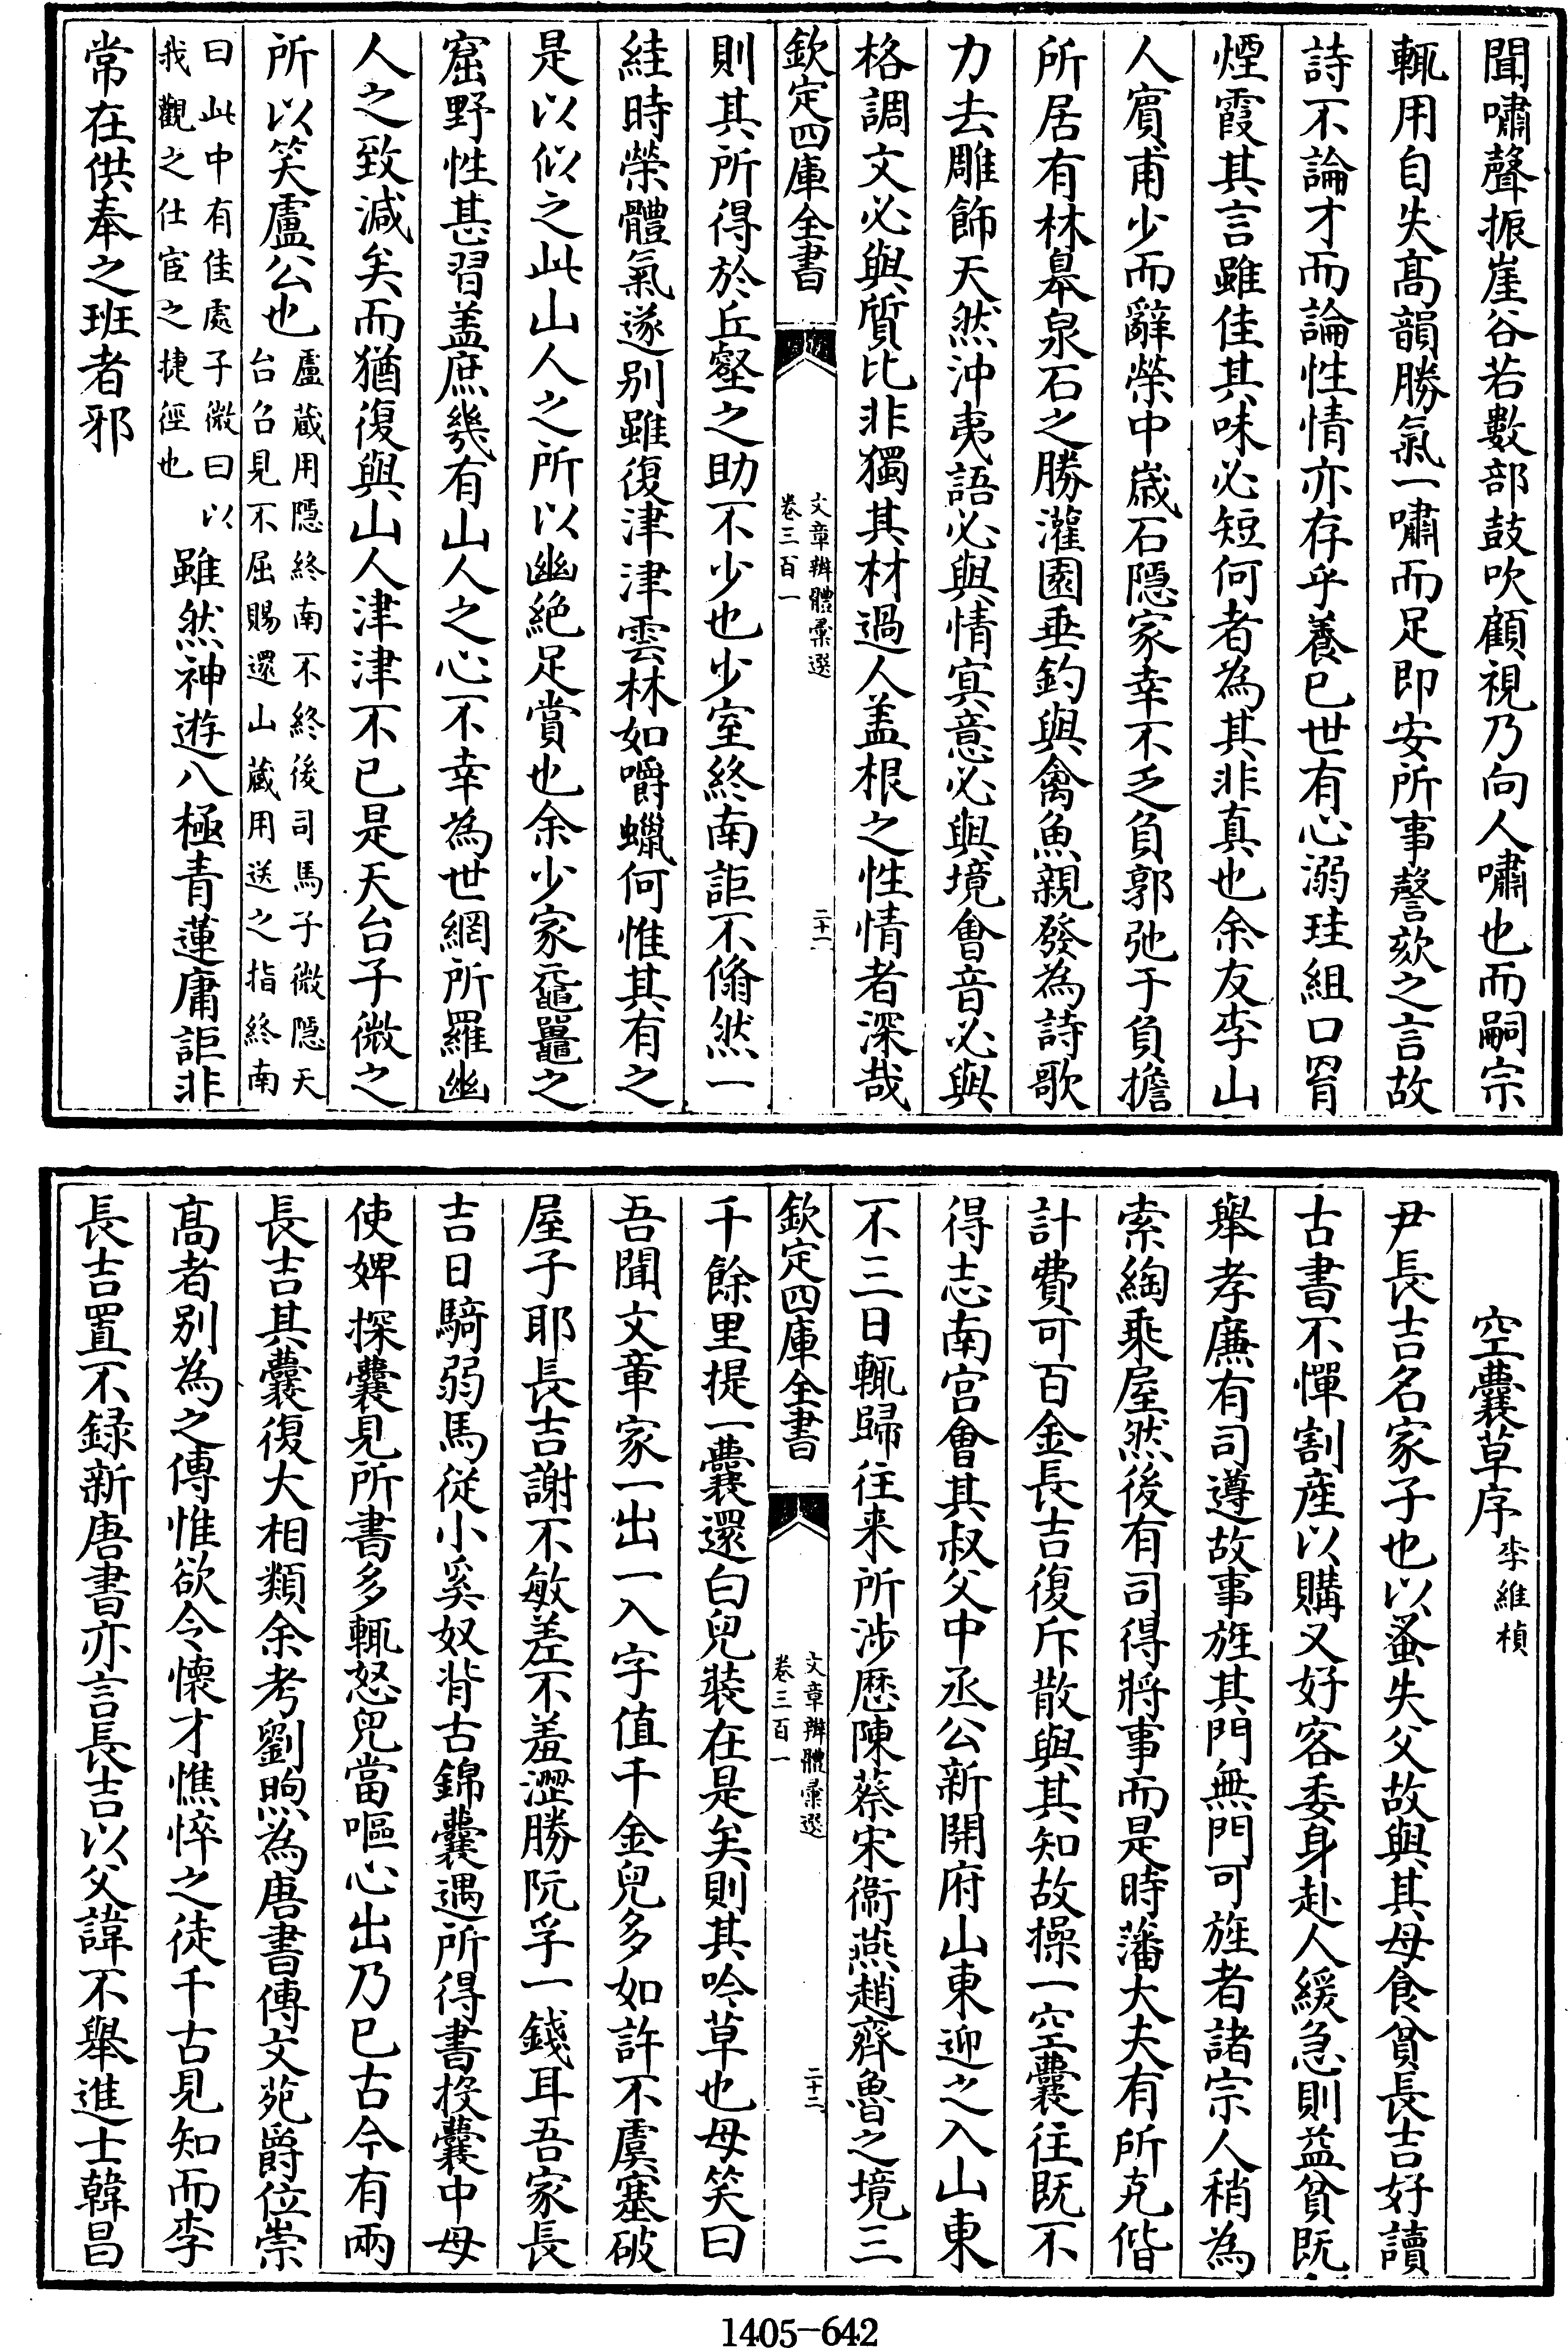 聞嘯聲振崖谷若數部鼓吹顧視乃向人嘯也而嗣宗
輒用自失高韻勝氣一嘯而足即安所事謦欬之言故
詩不論才而論性情亦存乎養已世有心溺珪組口罥
煙霞其言雖佳其味必短何者為其非真也余友李山
人賔甫少而辭榮中歲石隠家幸不乏負郭弛于負擔
所居有林皋泉石之勝灌園垂釣與禽魚親發為詩歌
力去雕飾天然沖夷語必與情冥意必與境會音必與
格調文必與質比非獨其材過人盖根之性情者深哉
欽定四庫全書
文章辨體彙選
卷三百一
二十一
則其所得於丘壑之助不少也少室終南詎不翛然一
絓時榮體氣遂别雖復津津雲林如嚼蠟何惟其有之
是以似之此山人之所以幽絶足賞也余少家黿鼉之
窟野性甚習盖庶幾有山人之心不幸為世網所羅幽
人之致減矣而猶復與山人津津不已是天台子微之
所以笑盧公也
盧蔵用隠終南不終後司馬子微隠天
台召見不屈賜還山蔵用送之指終南
曰此中有佳處子微曰以
我觀之仕宦之捷徑也
雖然神遊八極青蓮庸詎非
常在供奉之班者邪
空囊草序
李維楨
尹長吉名家子也以蚤失父故與其母食貧長吉好讀
古書不憚割産以購又好客委身赴人緩急則益貧既
舉孝亷有司遵故事旌其門無門可旌者諸宗人稍為
索綯乘屋然後有司得將事而是時藩大夫有所充偕
計費可百金長吉復斥散與其知故操一空囊往既不
得志南宫會其叔父中丞公新開府山東迎之入山東
不三日輒歸往来所涉歴陳蔡宋衞燕趙齊魯之境三
欽定四庫全書
文章辨體彙選
卷三百一
二十二
千餘里提一囊還白兒装在是矣則其吟草也母笑曰
吾聞文章家一出一入字值千金兒多如許不虞塞破
屋子耶長吉謝不敏差不羞澀勝阮孚一錢耳吾家長
吉日騎弱馬從小奚奴背古錦囊遇所得書投囊中母
使婢探囊見所書多輒怒兒當嘔心出乃已古今有兩
長吉其囊復大相類余考劉煦為唐書傳文苑爵位崇
高者别為之傳惟欲令懐才憔悴之徒千古見知而李
長吉置不録新唐書亦言長吉以父諱不舉進士韓昌
1405-642